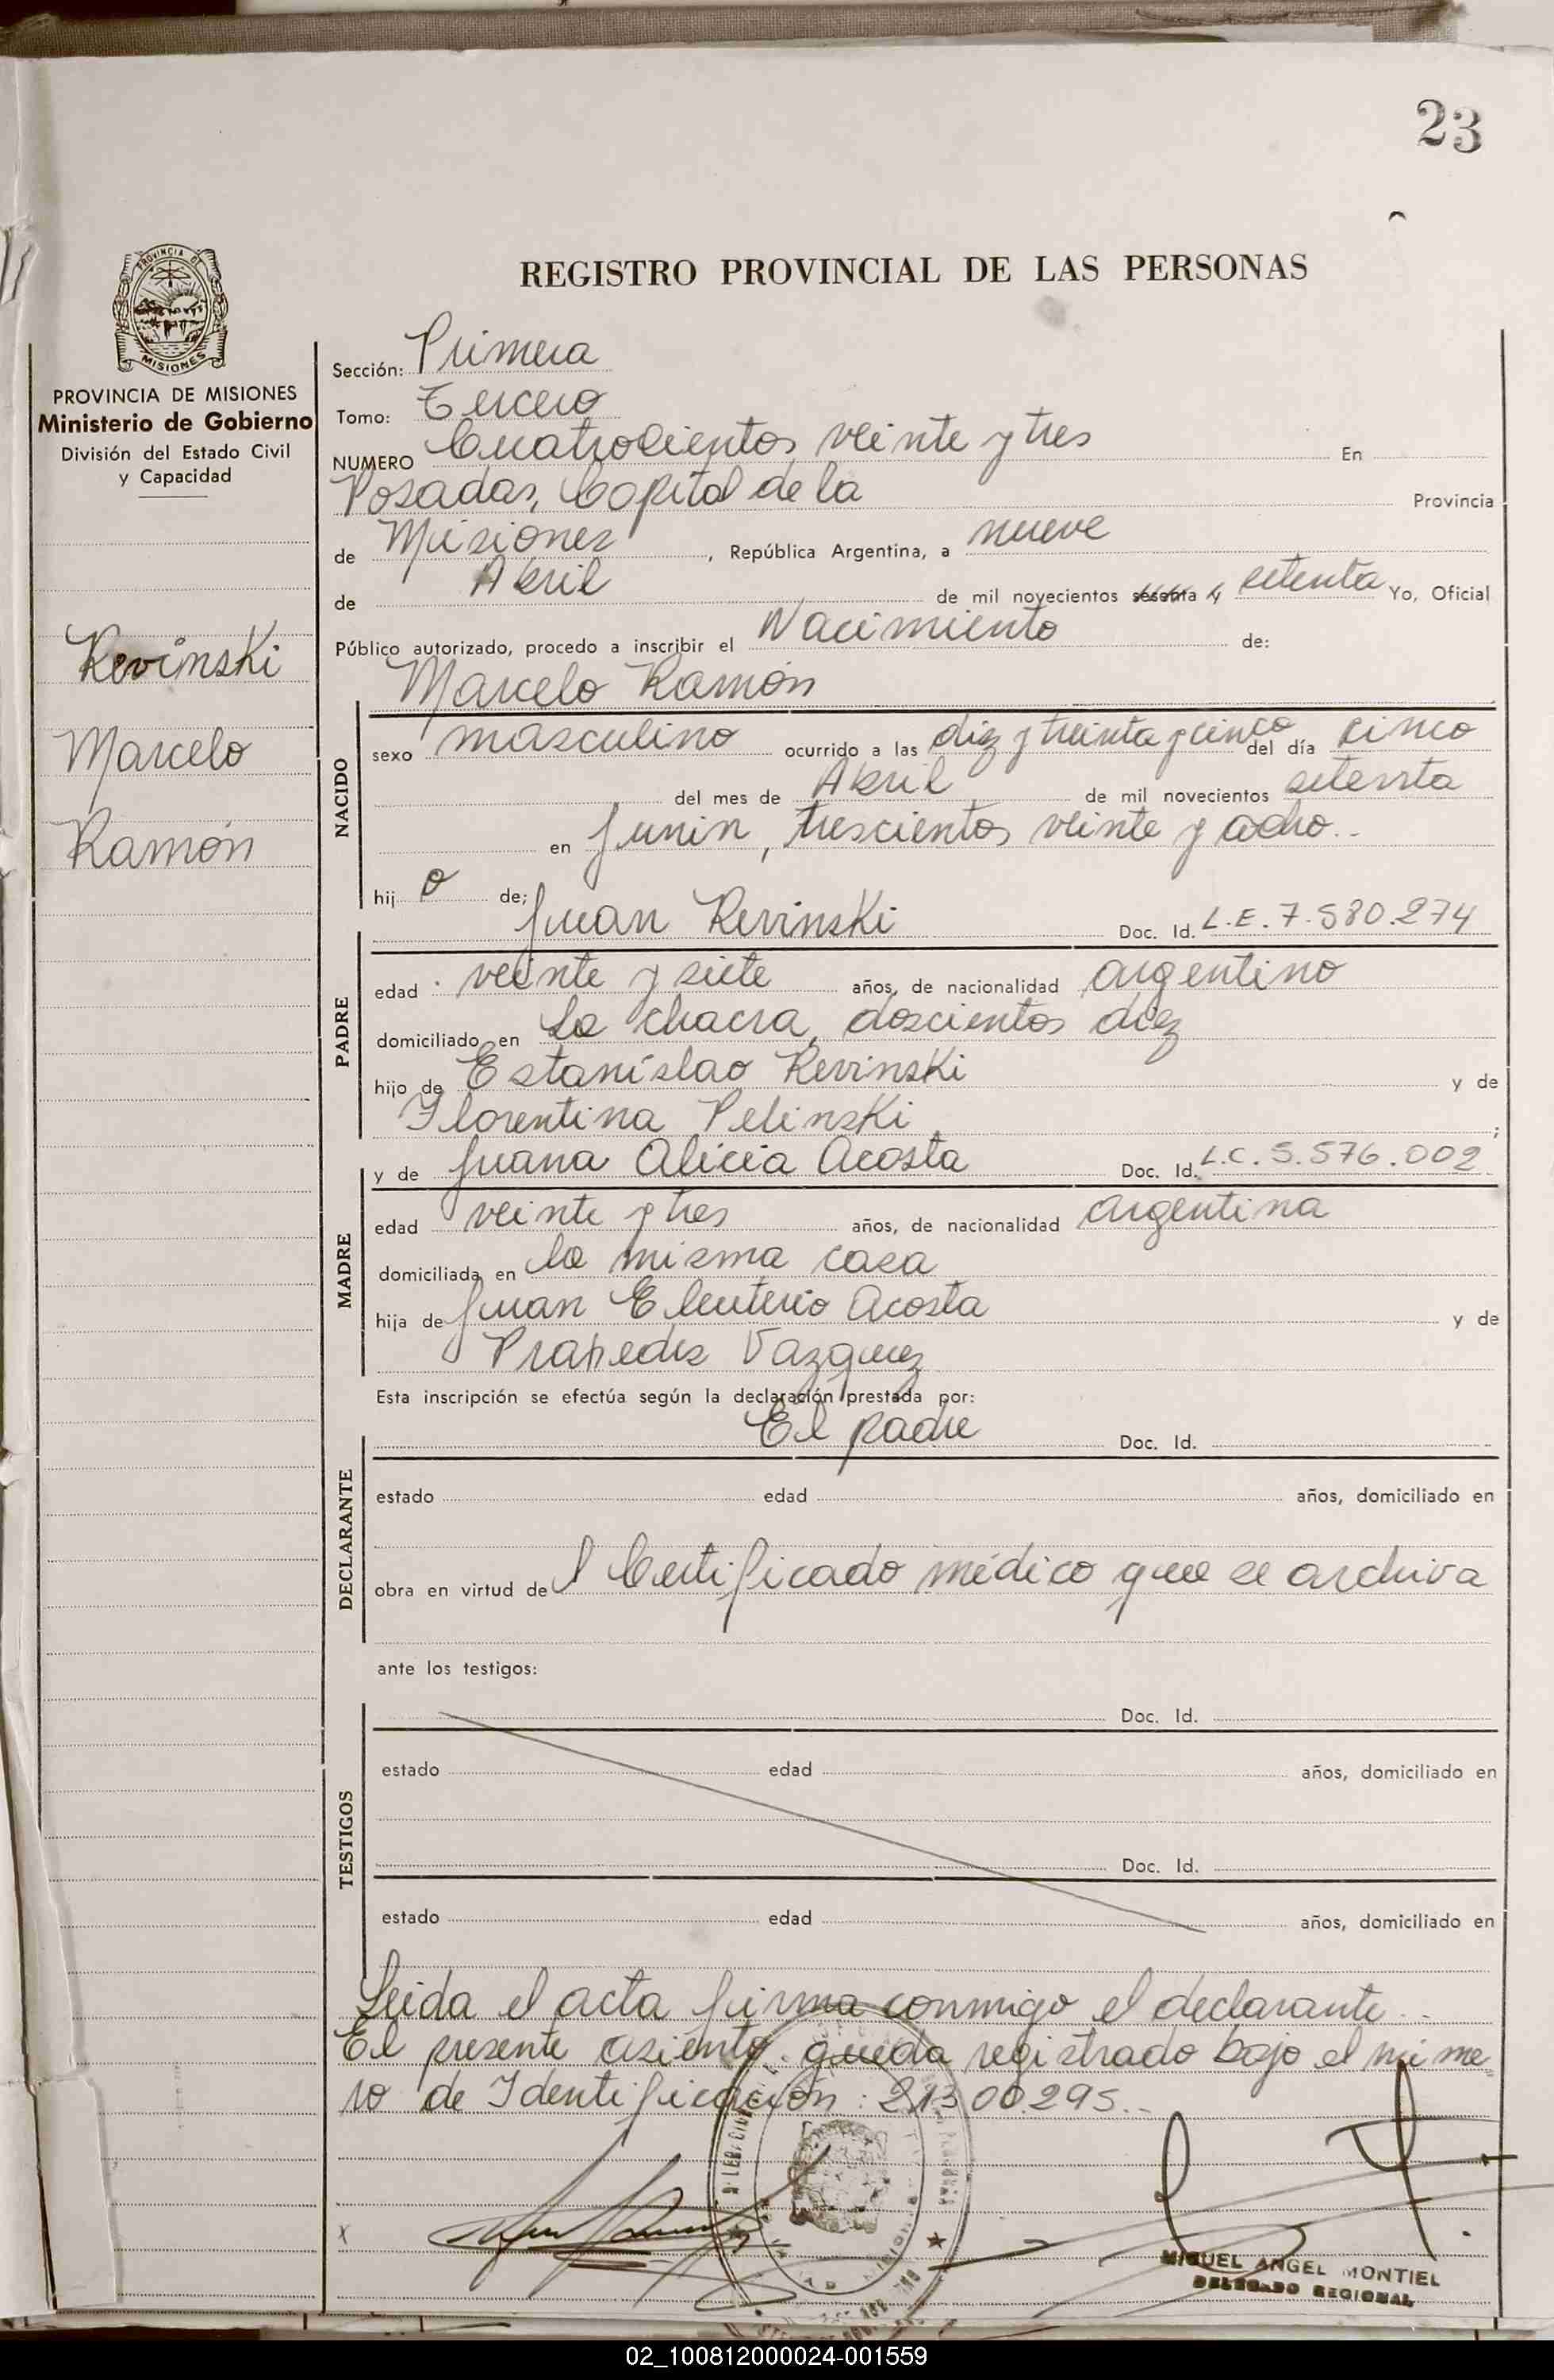 23
PROVINCIA DE
MISIONES
PROVINCIA DE MISIONES
Ministerio de Gobierno
División del Estado Civil
y Capacidad
Revinski
Marcelo
Ramón
REGISTRO PROVINCIAL DE LAS PERSONAS
Sección: Primera
Tomo: Tercero
NUMERO Cuatrocientos veinte y tres En
Posadas, Capital de la Provincia
de Misiones, República Argentina, a nueve
de Abril de mil novecientos sesenta y setenta Yo, Oficial
Público autorizado, procedo a inscribir el Nacimiento de:
Marcelo Ramón
NACIDO
sexo masculino ocurrido a las diez y treinta y cinco del día cinco
del mes de Abril de mil novecientos setenta
en Junin, trescientos veinte y ocho..
hijo de;
Juan Revinski Doc. Id. L.E. 7.580.274
PADRE
edad veinte y siete años, de nacionalidad argentino
domiciliado en La chacra, doscientos diez
hijo de Estanislao Revinski y de
Florentina Pelinski;
y de Juana Alicia Acosta Doc. Id. L.C. 5.576.002
MADRE
edad veinte y tres años, de nacionalidad argentina
domiciliada en la misma casa
hija de Juan Eleuterio Acosta y de
Prapedes Vazquez
Esta inscripción se efectúa según la declaración prestada por:
El padre Doc. Id.
DECLARANTE
estado edad años, domiciliado en
obra en virtud del Certificado médico que se archiva
ante los testigos:
Doc. Id.
TESTIGOS
estado edad años, domiciliado en
Doc. Id.
estado edad años, domiciliado en
Leida el acta firma conmigo el declarante..
El presente asiento queda registrado bajo el núme
ro de Identificación: 21300295..
x
MIGUEL ANGEL MONTIEL
DELEGADO REGIONAL
02_100812000024-001559